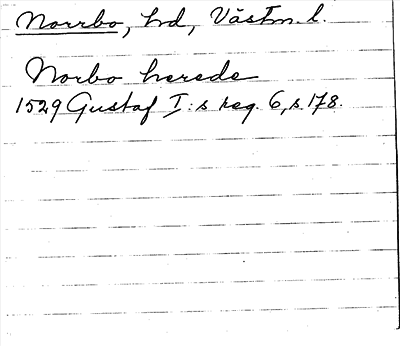 Norrbo, hd, Västm. l.
Norbo herede
1529 Gustaf I:s reg. 6, s. 178.